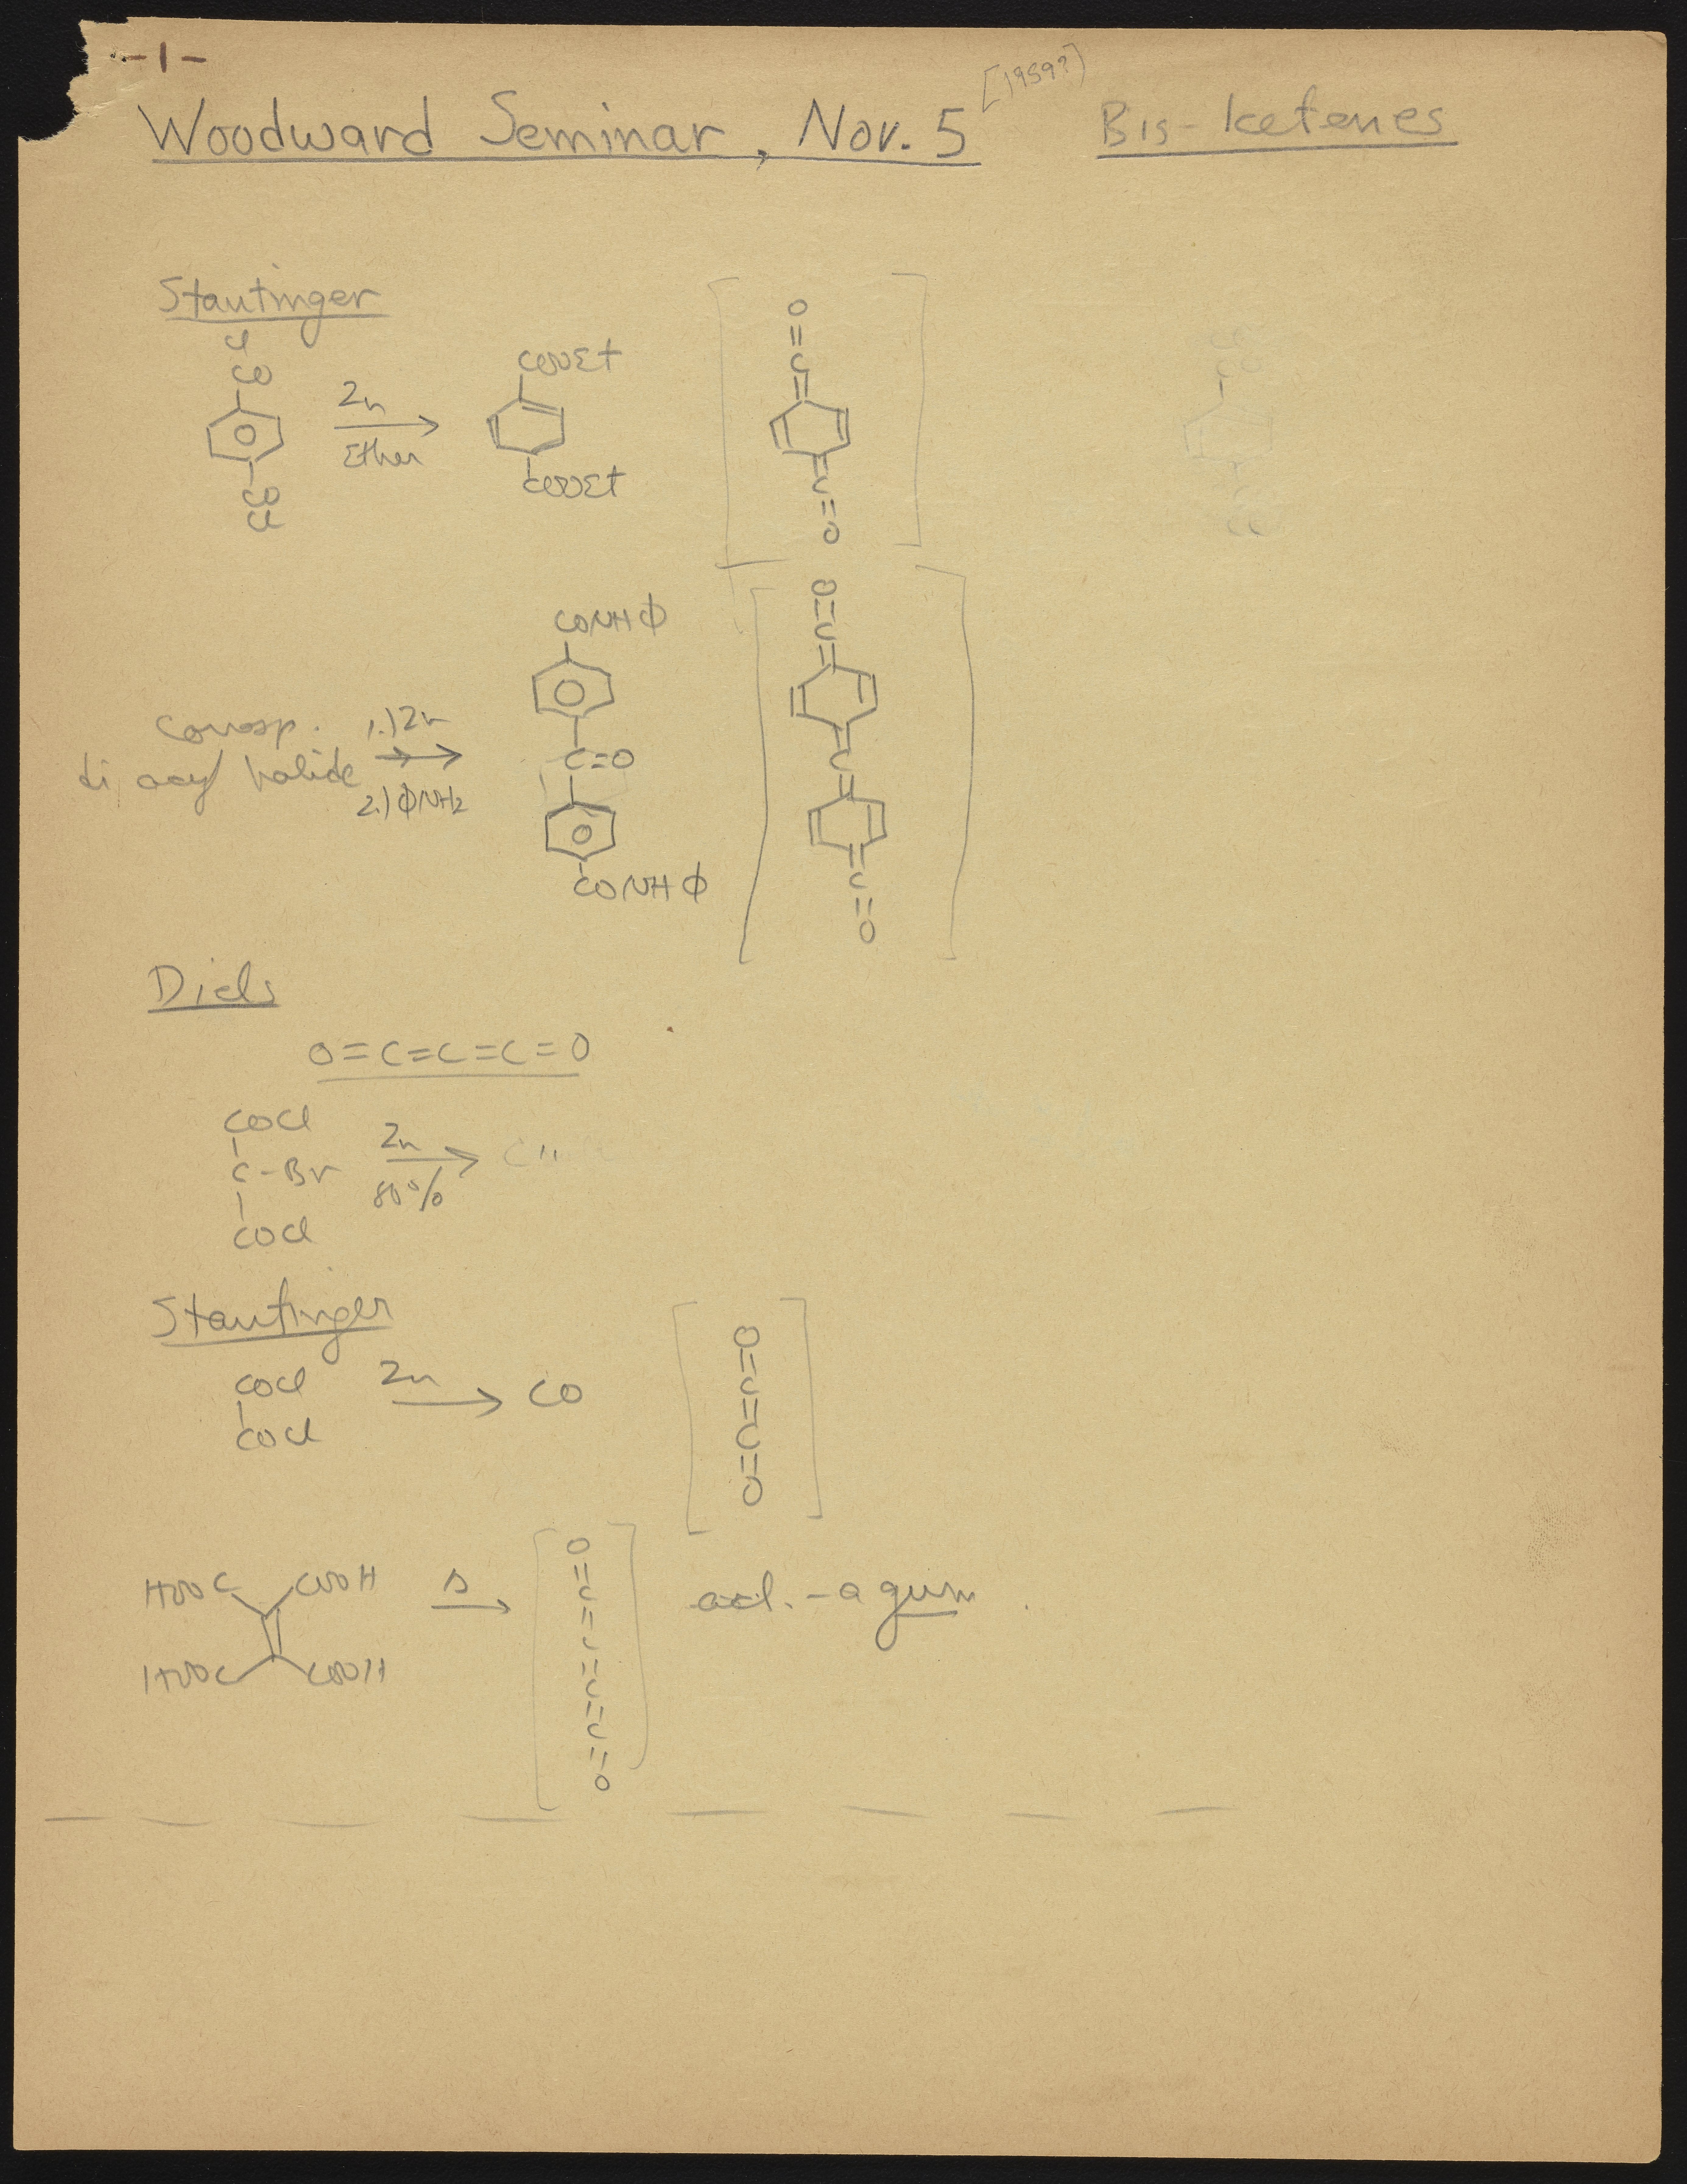 -1-
Woodward Seminar, Nov. 5 [1959?] Bis-ketenes
Stautinger
Cl
CO
CO
Cl
Zn
Ether
COOEt
COOEt
O=C=
=C=O
corresp.
di acyl halide
1.) Zn
2.) ΦNH2
CONHΦ
C=O
CONHΦ
O=C=
=C=
=C=O
Diels
O=C=C=C=O
COCl
C-Br
COCl
Zn
80%
Stautinger
COCl
COCl
Zn
CO
O=C=C=O
HOOC COOH
HOOC COOH
Δ
O=C=C=C=C=O
act. - a gum